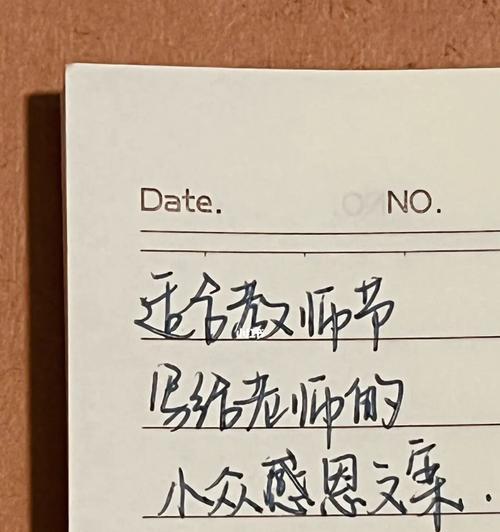 Date. NO.
适合教师节
写给老师的
小众感恩文案.